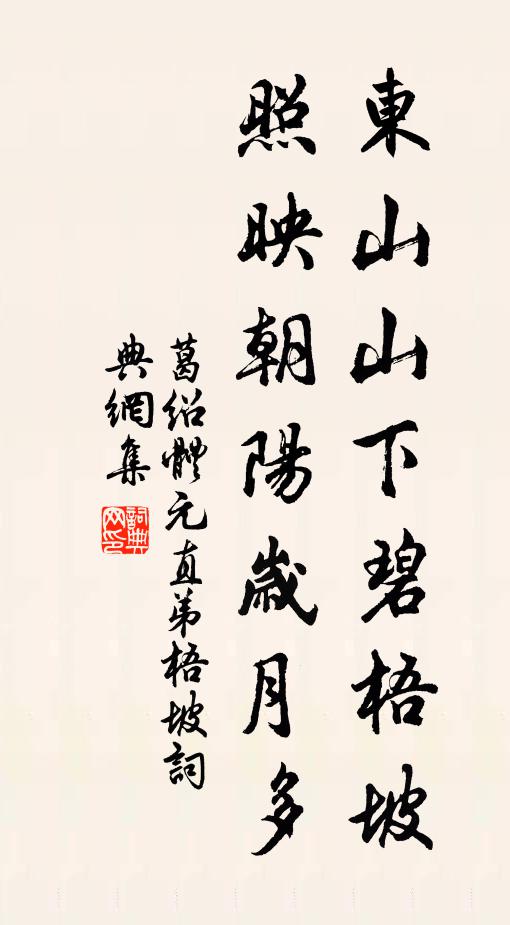 東山山下碧梧坡
照映朝陽歲月多
葛紹體元直弟梧坡詞
典網集
詞典
网印